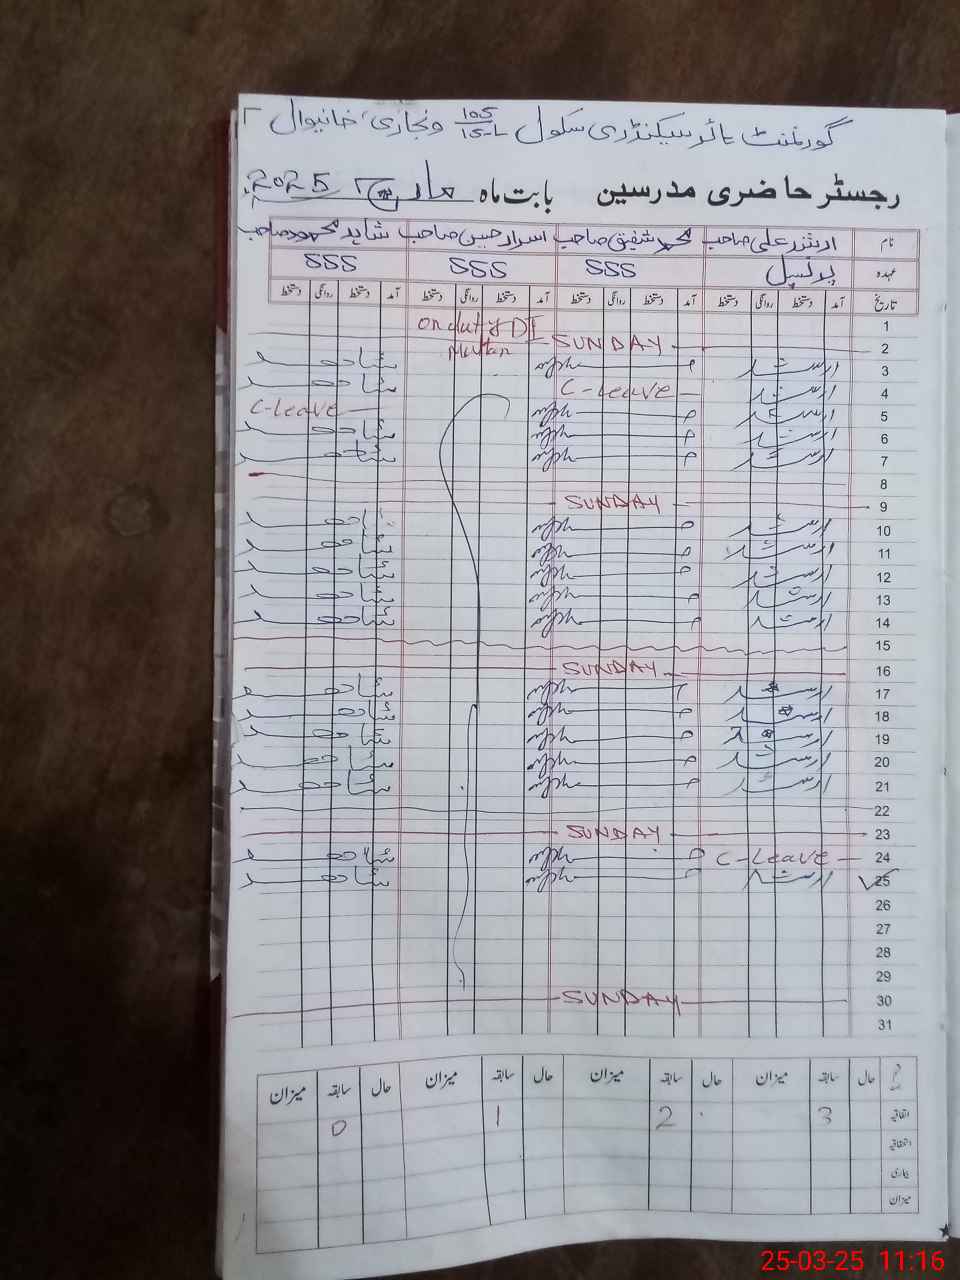 گورنمنٹ ہائر سیکنڈری سکول 105/15-L ونجاری، خانیوال
رجسٹر حاضری مدرسین بابت ماہ مارچ 2025
نام ارشد علی صاحب محمد شفیق صاحب اسرار حسین صاحب شاہد محمود صاحب
عہدہ پرنسپل SSS SSS SSS
تاریخ آمد دستخط روانگی دستخط آمد دستخط روانگی دستخط آمد دستخط روانگی دستخط آمد دستخط روانگی دستخط
1 on duty DI
2 SUNDAY Multan
3 ارشد شاھد
4 ارشد C-Leave شاھد
5 ارشد C-Leave
6 ارشد شاھد
7 ارشد شاھد
8
9 SUNDAY
10 ارشد شاھد
11 ارشد شاھد
12 ارشد شاھد
13 ارشد شاھد
14 ارشد شاھد
15
16 SUNDAY
17 ارشد شاھد
18 ارشد شاھد
19 ارشد شاھد
20 ارشد شاھد
21 ارشد شاھد
22
23 SUNDAY
24 C-Leave شاھد
25 ارشد شاھد
26
27
28
29
30 SUNDAY
31
حال سابقہ میزان حال سابقہ میزان حال سابقہ میزان حال سابقہ میزان
اتفاقیہ 3 2 1 0
استحقاقیہ
بیماری
میزان
25-03-25 11:16